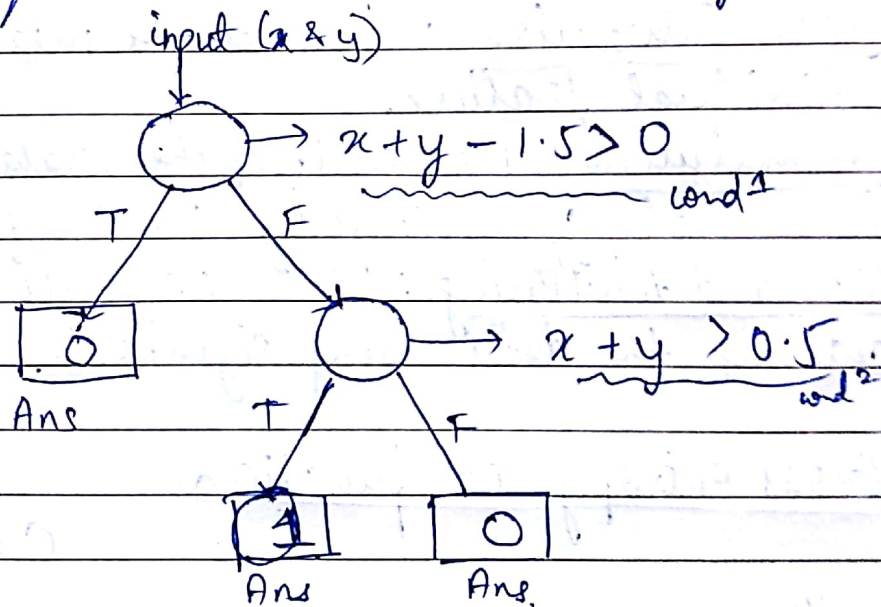 input (x & y)
x + y - 1.5 > 0
cond 1
T F
0
Ans
x + y > 0.5
cond 2
T F
1 0
Ans Ans.